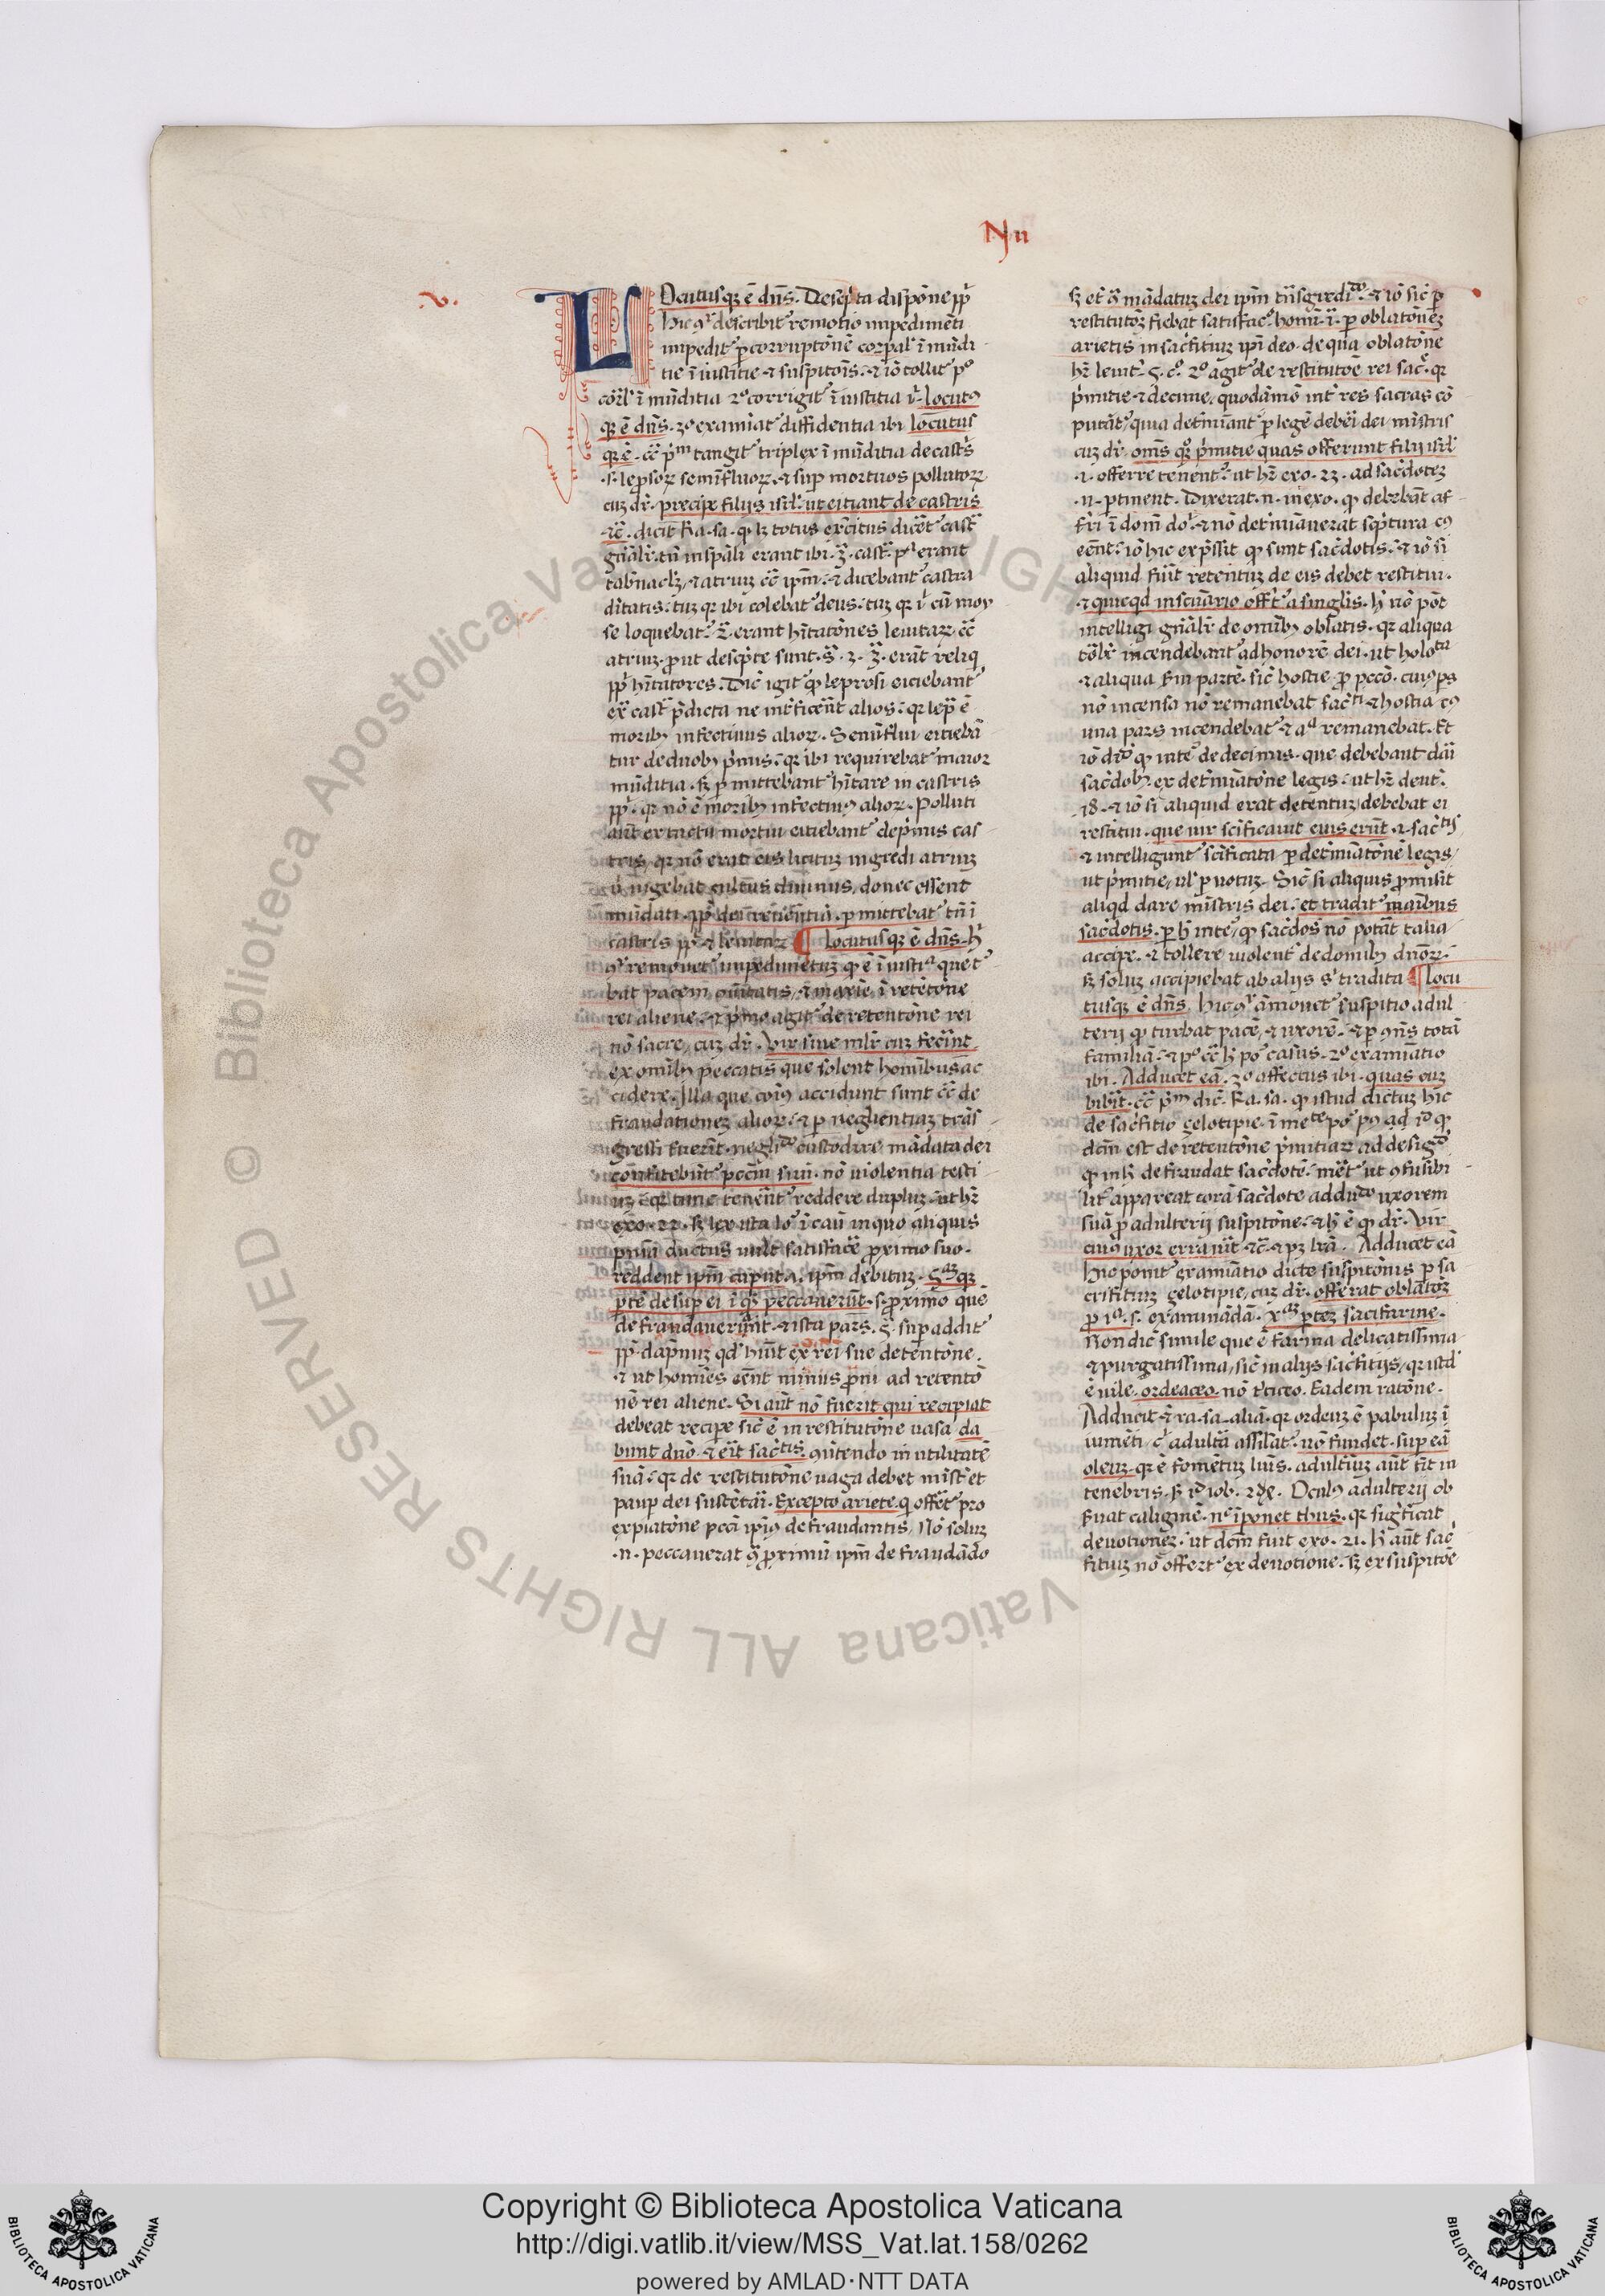 Nu
v.
Locutusqʒ ē dn̄s. Descp̄ta dispōne pp̄l
hic ꝯ̄r describit᷑ remotio impedimēti
impedit᷑ ꝑ corruptōnē corꝑal᷑ ī mūdi
tie ī iusticie ⁊ suspitōis. ⁊ iō tollit᷑ pͦ
ī mūditia 2ͦ corrigit᷑ ī iustitia locutꝰ
qʒ ē dn̄s. 3ͦ examiāt᷑ diffidentia ibi locutus
qʒ ē. tangit᷑ triplex ī mūditia de cast᷑s
.s. lepsoꝝ semīfluoꝝ. ⁊ sup mortuos pollutoꝝ
cuʒ dr̄. precipe filijs isrl᷑. ut eiciant de castris
⁊c̄. dicit Ra. sa. ꝙ lʒ totus exc̄itus dicēt᷑ cast᷑
gn̄alr̄. tn̄ in sp̄ali erant ibi .3. cast᷑. erant
tab̄nacl᷑ʒ. ⁊ atriuʒ cc̄ ipm̄. ⁊ dicebant᷑ castra
dītatis. tuʒ qꝛ ibi colebat᷑ deus. tuʒ qꝛ ī cū moy
se loquebat᷑. 2. erant hītatōnes leuitaꝝ cc̄
atriuʒ. prout descp̄te sunt. s̄. 3. 3. erāt reliqͥ
pp̄l hītatores. Dic̄ igit᷑ ꝙ leprosi eiciebant᷑
ex cast᷑ p̄dicta ne int᷑ficēnt alios. qꝛ lep̄ ē
morbꝰ infectiuus alioꝝ. Semīflui eiciebā
tur de duobꝰ p̄mis. qꝛ ibi requirebat᷑ maior
mūditia. sʒ ꝑmittebant᷑ hītare in castris
pp̄l. qꝛ nō ē morbꝰ infectiuꝰ alioꝝ. Polluti
aūt ex tactu mortui eiciebant᷑ de p̄mis cas
tris, qꝛ nō erat eis licituʒ ingredi atriuʒ
ū uigebat cultus diuinus, donec essent
mūdati. ꝑmittebat᷑ tn̄ ī
castris pp̄l ⁊ leuitaꝝ ¶ Locutusqʒ ē dn̄s. h̄
ꝯ̄r remouet᷑ impedimētuʒ qͦ ē ī iustiͣ que t᷑
bat pacem cōitatis, ⁊ maxie ī retētōne
rei aliene. ⁊ p̄mo agit᷑ de retentōne rei
nō sacre, cuʒ dr̄. Vir siue ml̄r cuʒ fecīnt
ex omībꝰ peccatis que solent hominibus ac
cidere. Illa que coīꝰ accidunt sunt cc̄ de
fraudationeʒ alioꝝ. ⁊ ꝑ negligentiaʒ trās
gressi fuerīt. custodire mādata dei
confitebūt᷑ pccm̄ suū. nō uiolentia testi
uʒ. qꝛ tunc tenēnt᷑ reddere dupluʒ. ut hr̄
exo. 22. sʒ lex ista loͬ ī cāū in quo aliquis
pn̄ia ductus uult satisfacē proximo suo.
reddent ipm̄ caput. ⁊. ipm̄ debituʒ. 5ͣʒ qʒ
ꝑtē desup ei ī quē peccauerūt. s. proximo quē
defraudauerūt. ⁊ ista pars .5. supaddit᷑
pp̄ dāpnuʒ qd̓ hūit ex rei sue detentōne.
⁊ ut homīes eēnt minus prōni ad retentō
nē rei aliene. Si aūt nō fuerit qui recipiat
debeat recipe sic̄ ē in restitutōne uasa da
bunt dn̄o. ⁊ erit sac᷑tis. ꝯutendo in utilitatē
suā. qꝛ de restitutōne uaga debet minist᷑ et
paup dei sustētari. Excepto ariete. q offet᷑ pro
expiatōne pccī ipiꝰ defraudantis, Nō soluʒ
.n. peccauerat ꝯ̄ proximū ipm̄ defraudādo
sʒ et̄ ꝯ̄ mādatuʒ dei ipm̄ tn̄sgrediͩͦ. ⁊ iō sic̄ ꝑ
restitutōʒ fiebat satisfacͦ. homī. ī. ꝑ oblatōneʒ
arietis in sac̄fituʒ ipi deo. de qua oblatōne
hr̄ leuit᷑. 5. cͦ. 2ͦ agit᷑ de restitutōe rei sac᷑e. qꝛ
p̄mitie ⁊ decime, quodāmō int᷑ res sacras cō
putāt᷑, quia det᷑mināt᷑ ꝑ legē deberi dei, mīstris
cuʒ dr̄. om̄s qͦʒ p̄mitie quas offerunt filij isrl᷑
.⁊. offerre tenent᷑. ut hr̄ exo. 23. ad sac̄doteʒ
.n. ꝑtinent. Dixerat .n. in exo. ꝙ debebāt af
fr̄i ī domū do᷑. ⁊ nō det᷑miāuerat sc̄ptura cꝰ
eēnt. iō hic exp̄ssit ꝙ sunt sac̄dotis. ⁊ iō si
aliquid fūit retentuʒ de eis debet restitui.
⁊ quicqd̓ in sc̄uārio offt᷑ a singlis. h̄ nō pōt
intelligi gn̄alr̄ de omībꝰ oblatis. qꝛ aliqua
tālr̄ incendebant᷑ ad honorē dei. ut holoᵗᵃ
⁊ aliqua fm parte. sic̄ hostie ꝓ pccō. cuiꝰ ps
nō incensa nō remanebat sac᷑ti ⁊ hostia eꝰ
una pars incendebat᷑ ⁊ aͣ remanebat. Et
iō drͩ qͦ inte᷑ de decimis. que debebant dāi
sac̄dobꝰ. ex det᷑miātōne legis. ut hr̄ deut᷑.
18. ⁊ iō si aliquid erat detentuʒ, debebat ei
restitui. que uir sc̄ificauit eius erūt. ⁊ sac᷑tis
⁊ intelligunt᷑ sc̄ificata ꝑ det᷑miātōnē legis,
ut p̄mitie, ul᷑ ꝑ uotuʒ. Sic̄ si aliquis promisit
aliqd̓ dare mīstris dei. et tradit᷑ manibus
sac̄dotis. ꝑ h̄ inte᷑, ꝙ sac̄dos nō potāt talia
accipe. ⁊ tollere uiolent᷑ de domibꝰ dn̄oꝝ.
sʒ soluʒ accipiebat ab alijs s᷑ tradita ¶ Locu
tusqʒ ē dn̄s. Hic ꝯ̄r āmouet᷑ suspitio adul
terij qͦ turbat pacē, ⁊ uxorē. ⁊ ꝑ ꝯn̄s totā
familiā. ⁊ pͦ cc̄ h̄ poͬ casus. 2ͦ examiātio
ibi. Adducet eā. 3ͦ affectus ibi. quas cuʒ
bibīt. cc̄ pͫ dic̄. Ra. sa. ꝙ istud dictuʒ hic
de sac̄fitio çelotipie. ī meᵗᵉ poͬ pꝰ ad iͩ qͦ
dc̄m est de retentōne p̄mitiaꝝ ad desigͩͦ
defraudat sac̄dotē. mēt᷑ ut ꝯfusibi
lit᷑ appareat corā sac̄dote adducͩͦ uxorem
suā ꝓ adulterij suspitōne. ⁊ h̄ ē ꝙ dr̄. Vir
cuiꝰ uxor errauīt ⁊c̄. ⁊ pʒ lr̄a. Adducet eā
hic ponit᷑ examiātio dicte suspitōnis ꝑ sa
crifituʒ çelotipie, cuʒ dr̄. offerat oblatōʒ
ꝓ iͣ. s. examinādā. xͣʒ ꝑteʒ saci farine.
Non dic̄ simile que ē farina delicatissima
⁊ purgatissima, sic̄ in alijs sac̄fitijs, qꝛ istd̓
ē uile. ordeaceo. nō t᷑ticeo. Eadem ratōne.
Adducit ⁊ ra. sa. aliā. qꝛ ordeuʒ ē pabuluʒ ī
iumēti, cͥ adult᷑a assilat᷑. nō fundet. sup eā
oleuʒ. qꝛ ē fomētuʒ luis. adult᷑iuʒ aūt fit in
tenebris. fͫ iͩ iob. 24. Oculꝰ adulterij ob
seruat caliginē. nͨ īponet thus. qꝛ sigificat
deuotioneʒ. ut dc̄m fuit exo. 21. h̄ aūt sac᷑
fituʒ nō offert᷑ ex deuotione. sʒ ex suspitōe
Copyright © Biblioteca Apostolica Vaticana
http://digi.vatlib.it/view/MSS_Vat.lat.158/0262
powered by AMLAD·NTT DATA
BIBLIOTECA APOSTOLICA VATICANA
BIBLIOTECA APOSTOLICA VATICANA
© Biblioteca Apostolica Vaticana ALL RIGHTS RESERVED